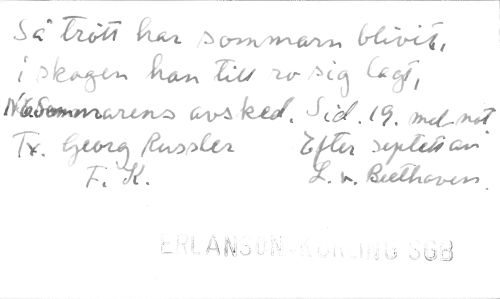 Så trött har sommarn blivit,
i skogen han till ro sig lagt,
Sommarens avsked. Sid. 19. med not
Tx. Georg Russler Efter septett av
F. K. L. v. Beethoven.
ERLANSON-KÖRLING SGB